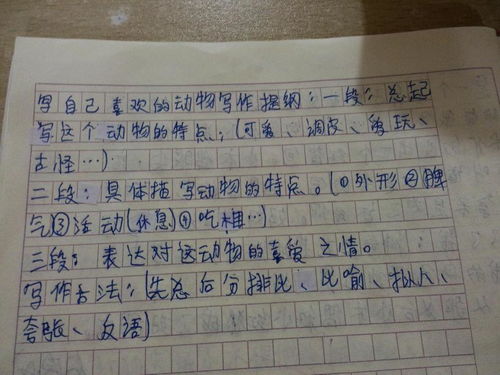 写自己喜欢的动物写作提纲：一段：总起
写这个动物的特点；(可爱、调皮、爱玩、
古怪…)
二段：具体描写动物的特点。(①外形②脾
气③活动(休息)④吃相…)
三段：表达对这动物的喜爱之情。
写作方法：(先总后分排比、比喻、拟人、
夸张、反语)